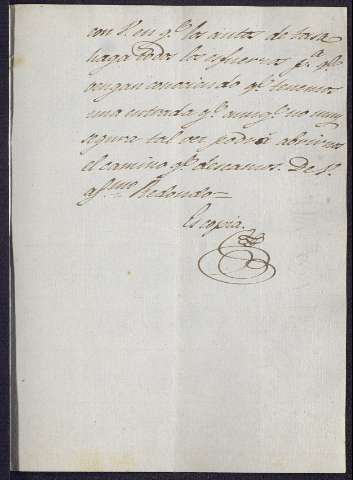 con V. en qe. los autos de
haga todo los esfuerzos pa. qe.
conociendo qe. tenemos
una entrada qe. aunqe. no muy
segura tal vez podrá abrirnos
el camino qe. deseamos. De V.
afmo. Redondo =
Es copia.